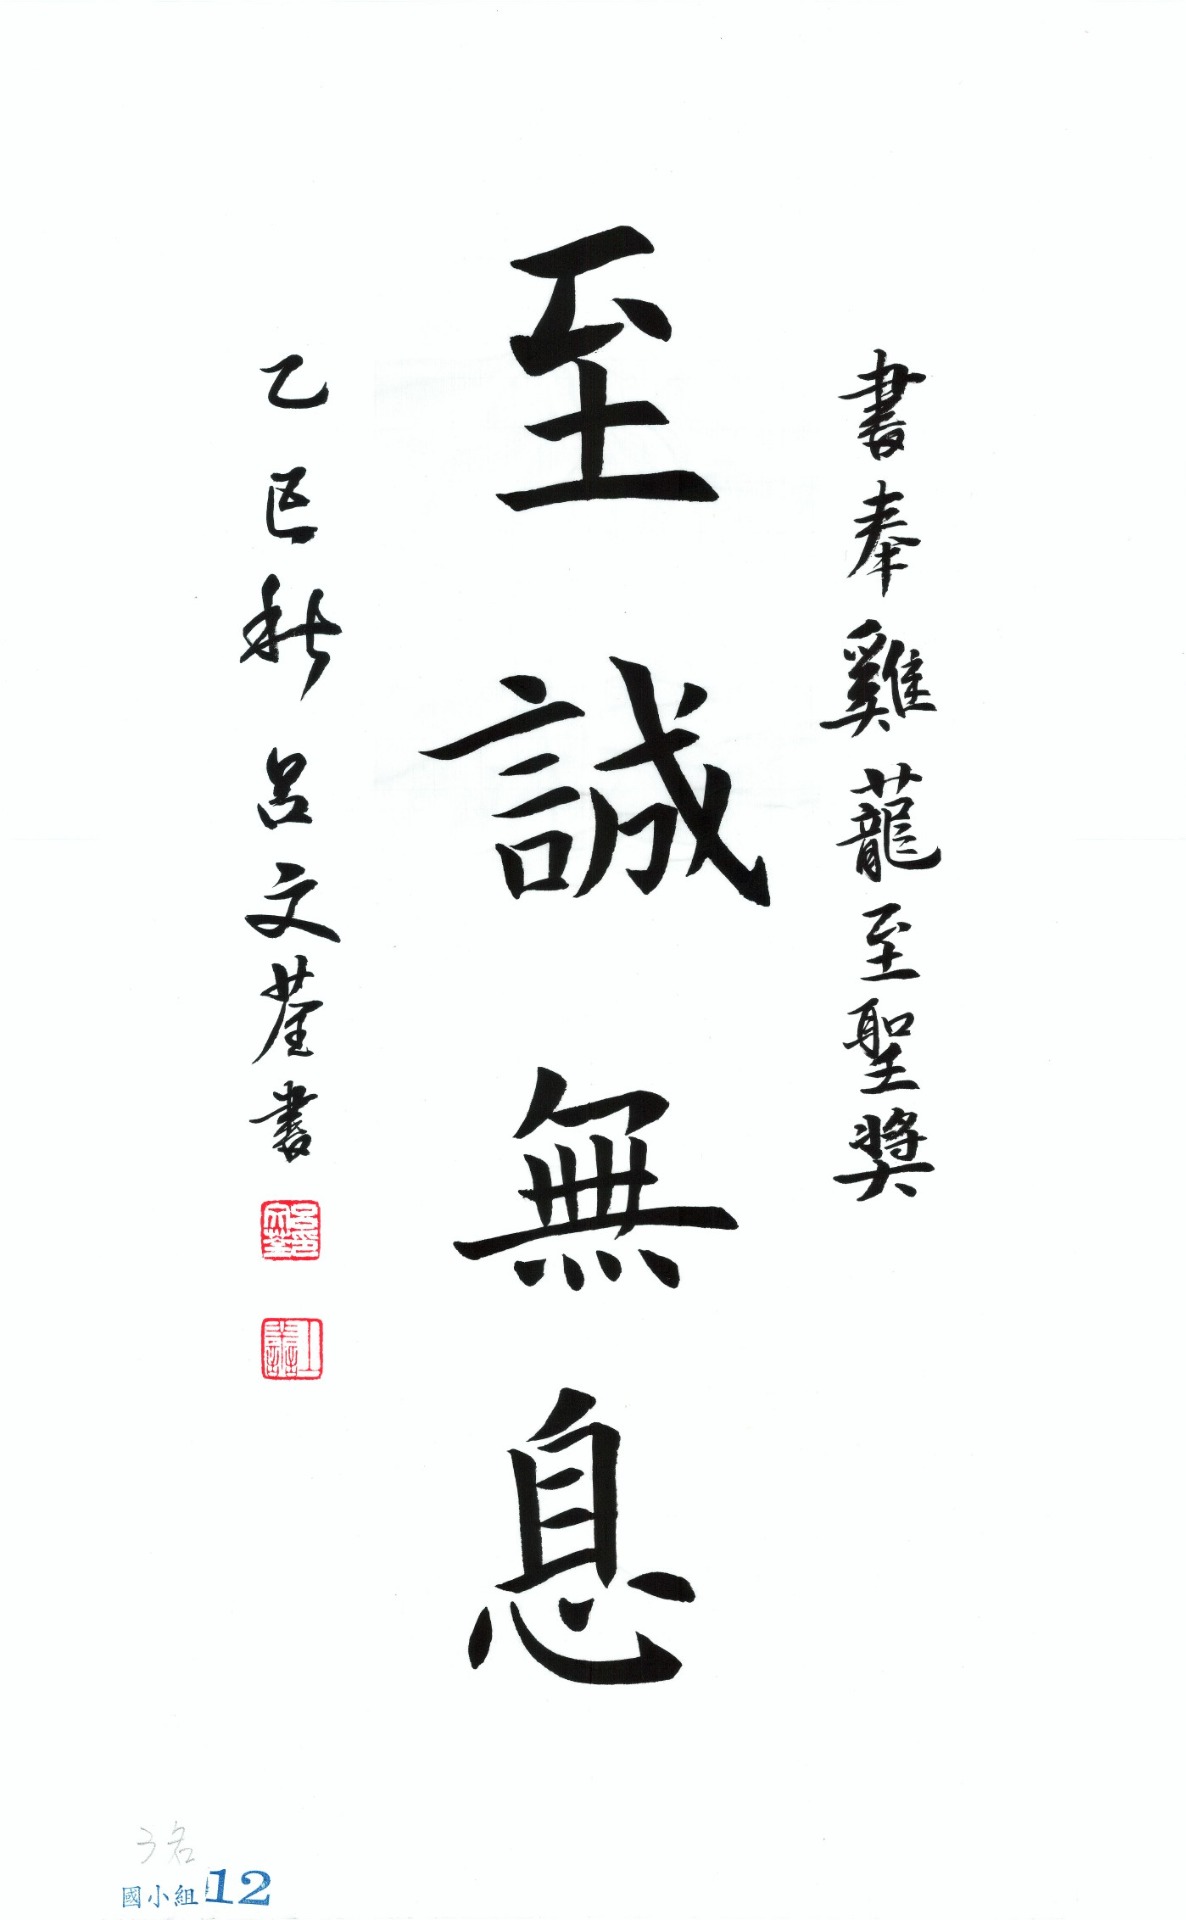 書奉雞蘢至聖獎
至誠無息
乙巳秋呂文荃書
3名
國小組12